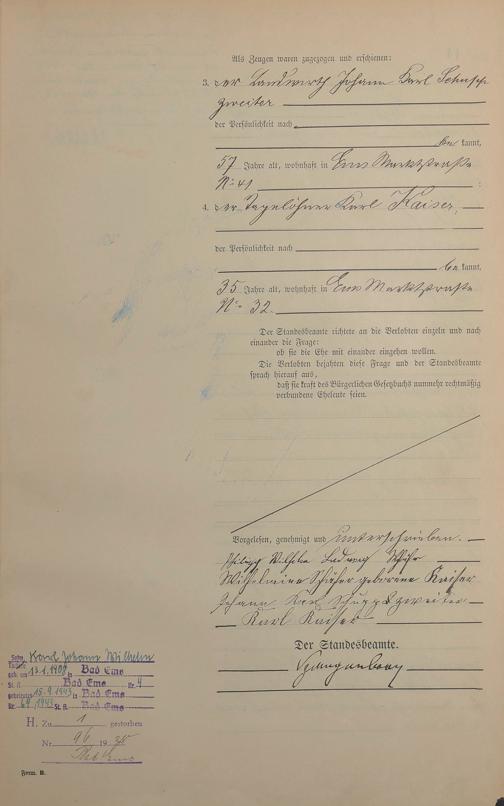 Als Zeugen waren zugezogen und erschienen:
3. der Landwirth Johann Karl
zweiter
der Persönlichkeit nach
be kannt,
57 Jahre alt, wohnhaft in Ems Marktstraße
No 41
4. der Tagelöhner Karl Kaiser,
der Persönlichkeit nach
be kannt,
35 Jahre alt, wohnhaft in Ems Marktstraße
No 32.
Der Standesbeamte richtete an die Verlobten einzeln und nach
einander die Frage:
ob sie die Ehe mit einander eingehen wollen.
Die Verlobten bejahten diese Frage und der Standesbeamte
sprach hierauf aus,
daß sie kraft des Bürgerlichen Gesetzbuchs nunmehr rechtmäßig
verbundene Eheleute seien.
Vorgelesen, genehmigt und unterschrieben.
Philipp Wilhelm Ludwig
Wilhelmine Schäfer geborene Kaiser
Johann Karl Schupp zweiter
Karl Kaiser
Der Standesbeamte.
Spangenberg
Sohn Karl Johann Wilhelm
geb. am in Bad Ems
St. A. Bad Ems Nr. 4
geheiratet 15.9.1943 in Bad Ems
Nr. St. A. Bad Ems
H. Zu 1 gestorben
Nr. 96 19
Bad Ems
Form. B.